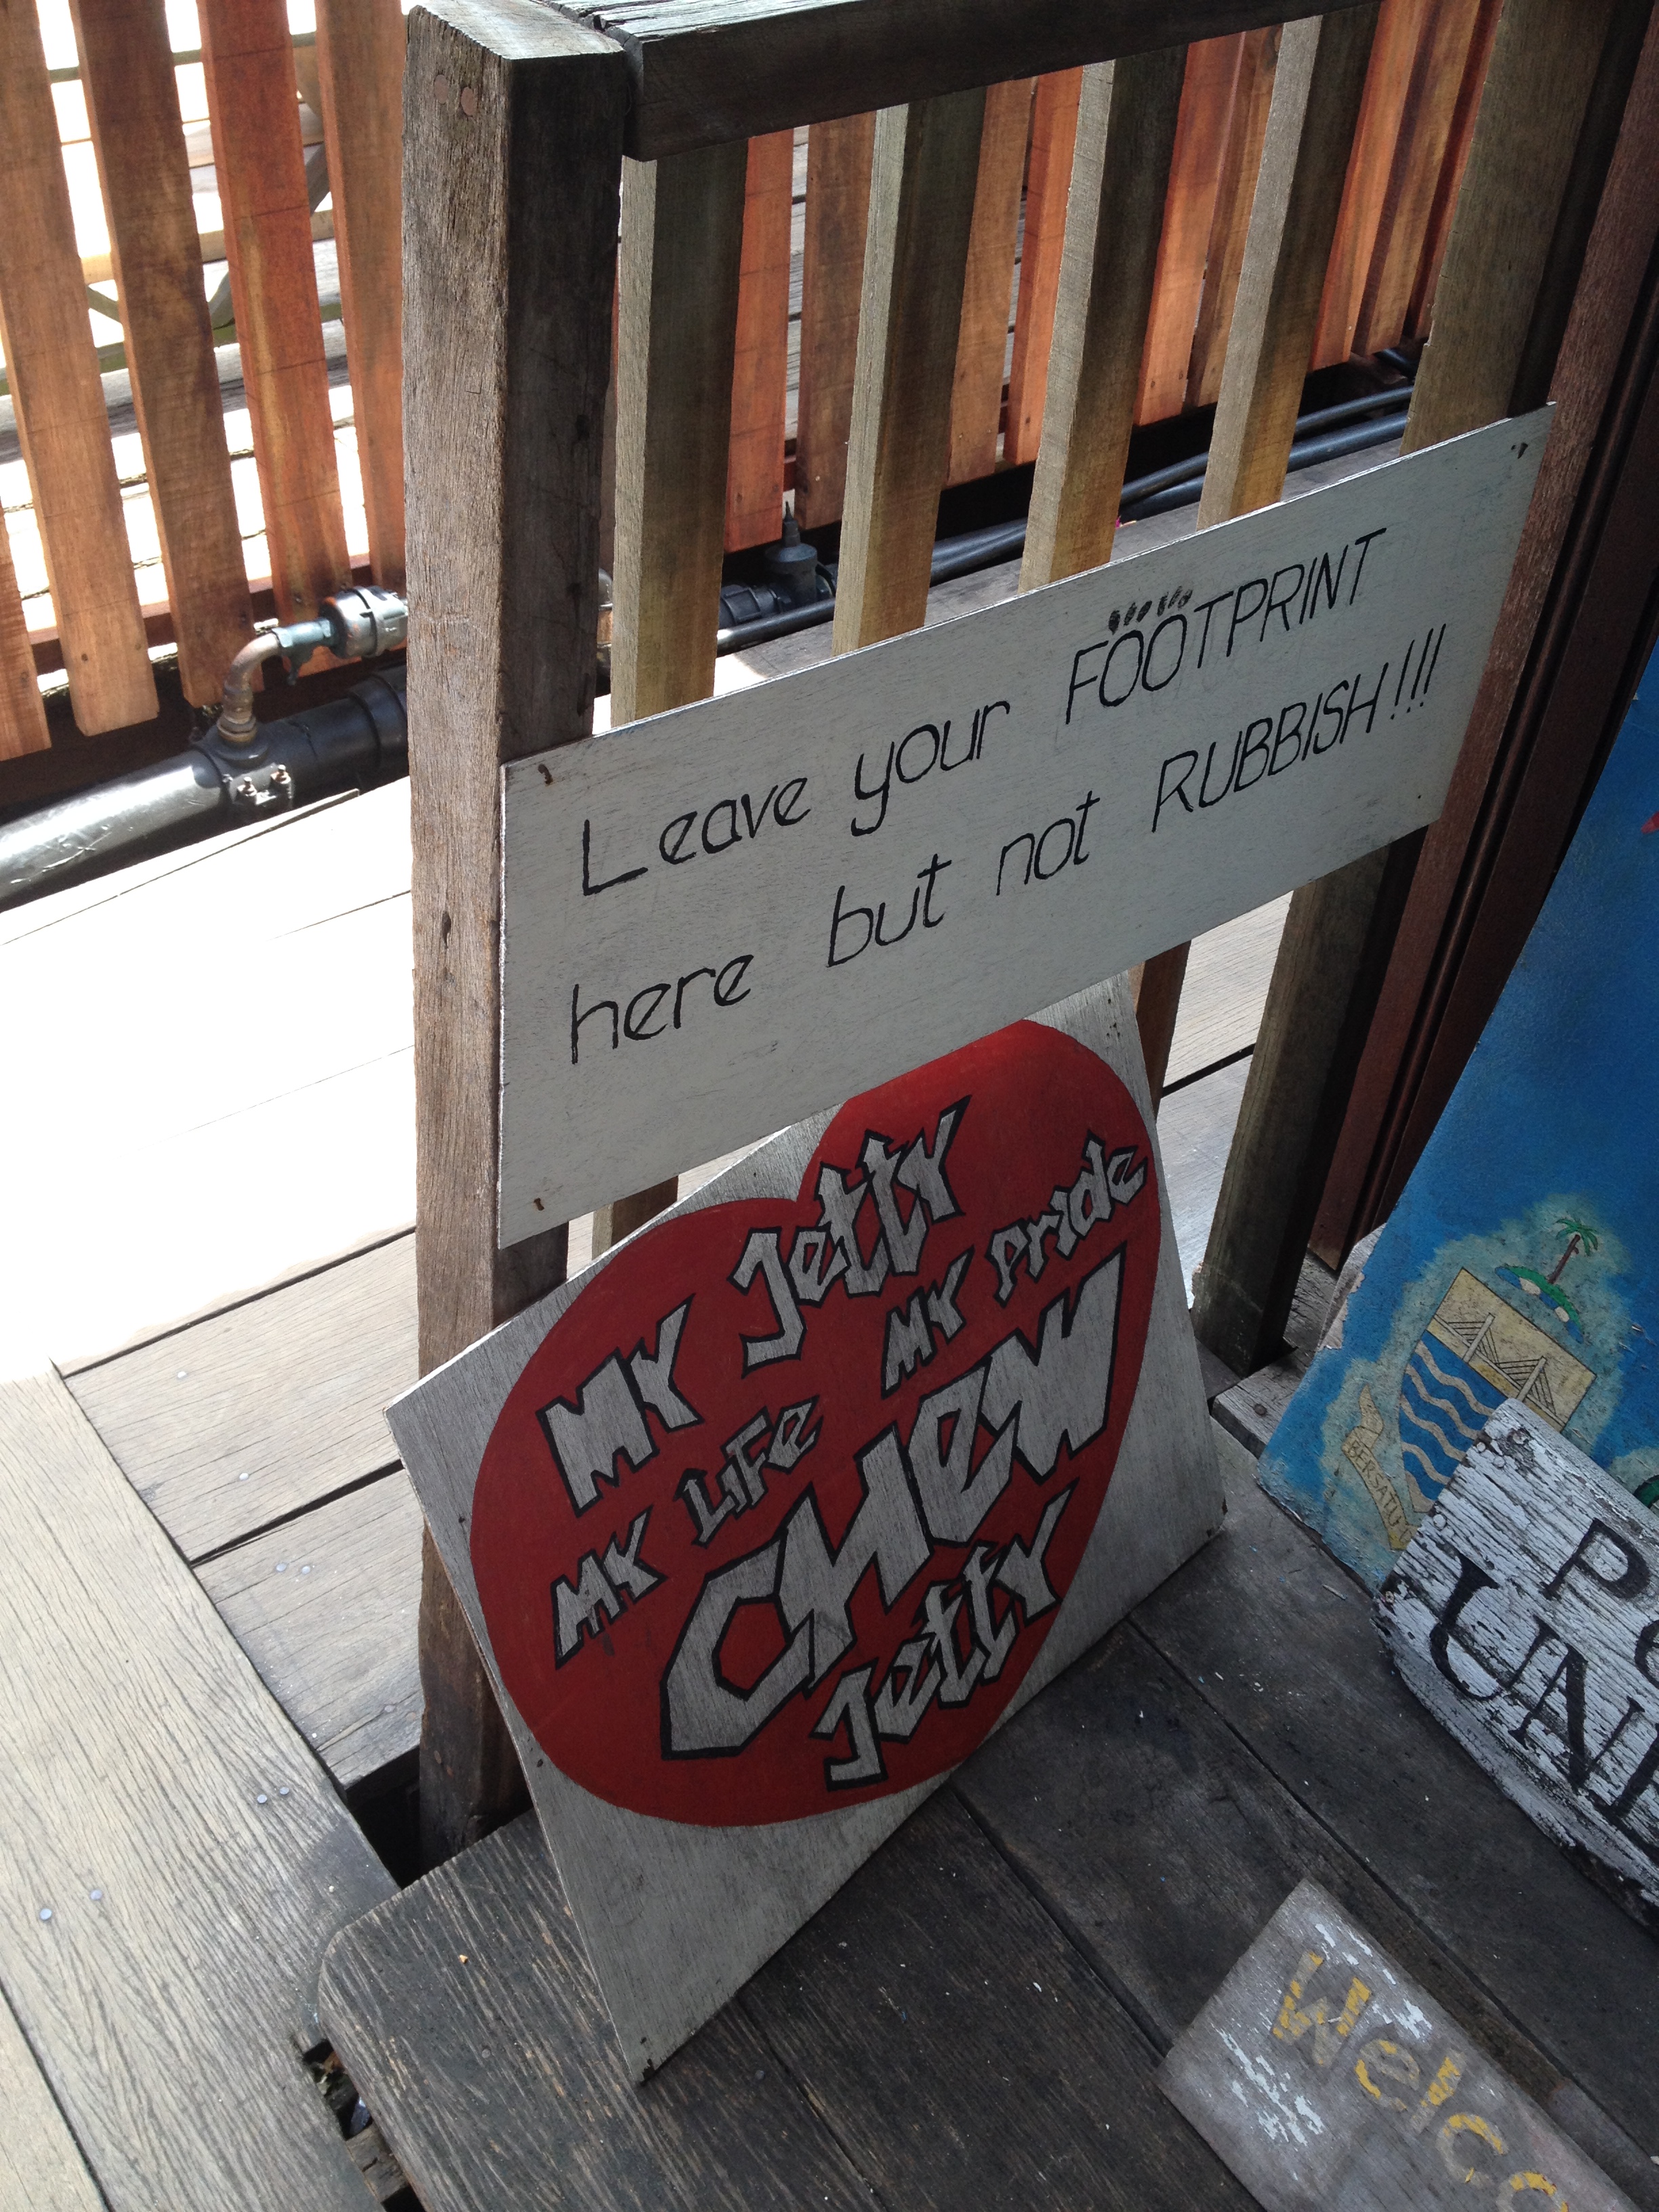 Leave your FOOTPRINT
here but not RUBBISH!!!
MY Jetty
MY LIFe MY PRide
CHEW
Jetty
BERSATU